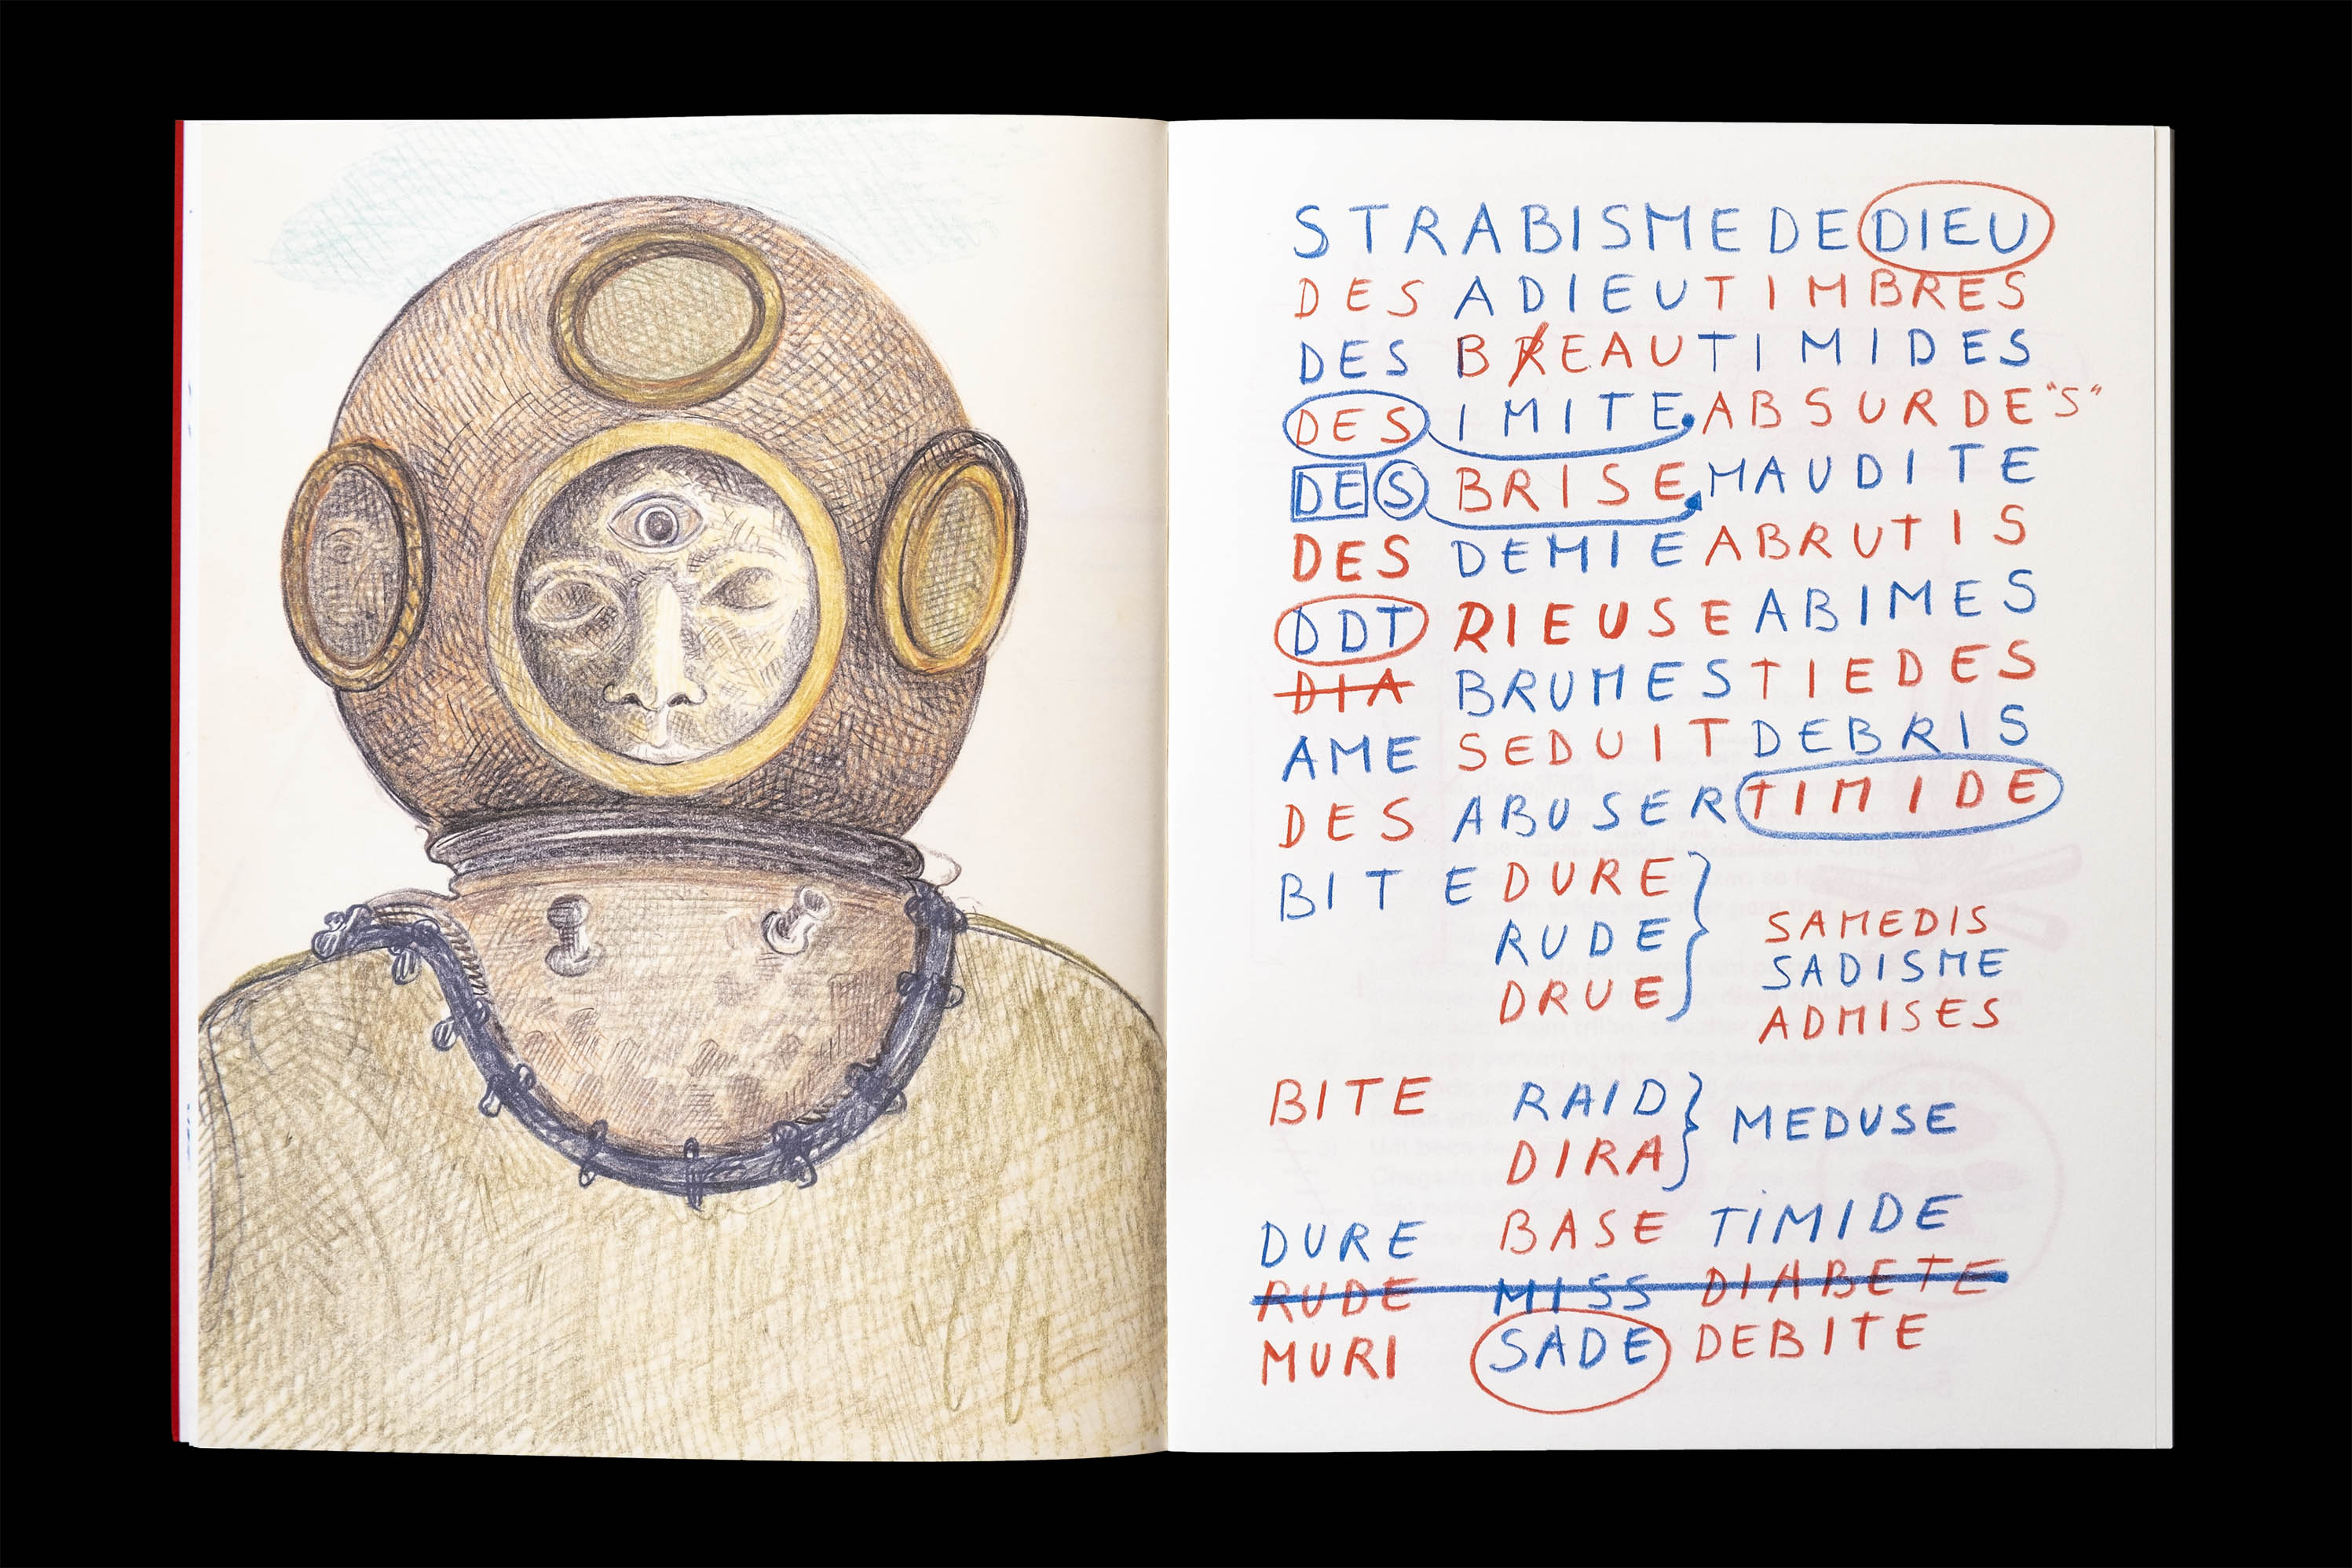 STRABISME DE DIEU
DES ADIEU TIMBRES
DES BREAU TIMIDES
DES IMITE ABSURDE "S"
DES BRISE MAUDITE
DES DEMIE ABRUTIS
DDT RIEUSE ABIMES
DIA BRUMES TIEDES
AME SEDUIT DEBRIS
DES ABUSER TIMIDE
BITE DURE
RUDE
DRUE
SAMEDIS
SADISME
ADMISES
BITE RAID
DIRA
MEDUSE
DURE BASE TIMIDE
RUDE MISS DIABETE
MURI SADE DEBITE